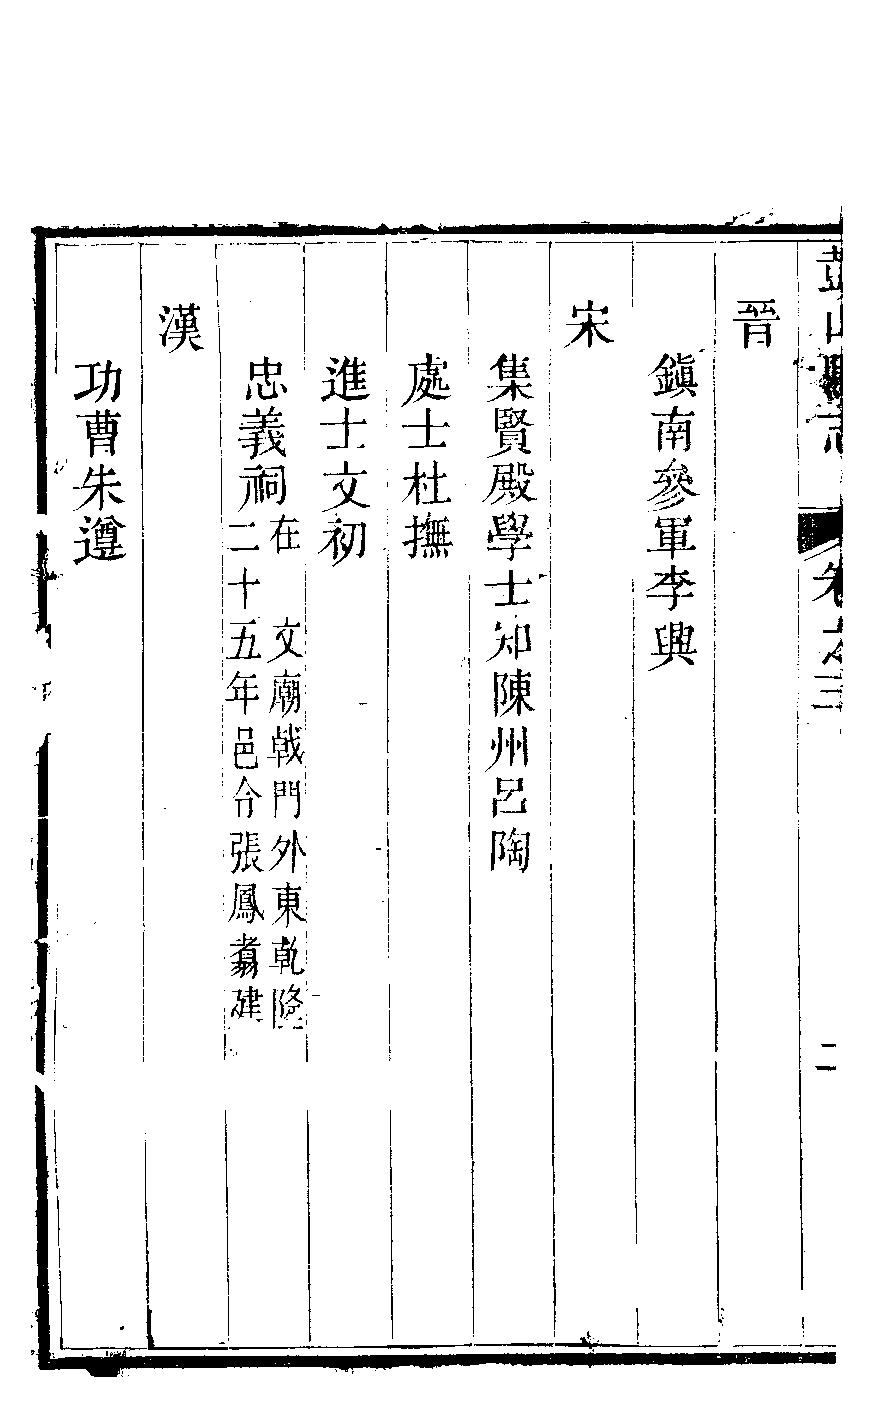 彭山縣志 卷之三 二
晉
鎮南參軍李興
宋
集賢殿學士知陳州呂陶
處士杜撫
進士文初
忠義祠 在 文廟戟門外東乾隆
二十五年邑令張鳳翥建
漢
功曹朱遵